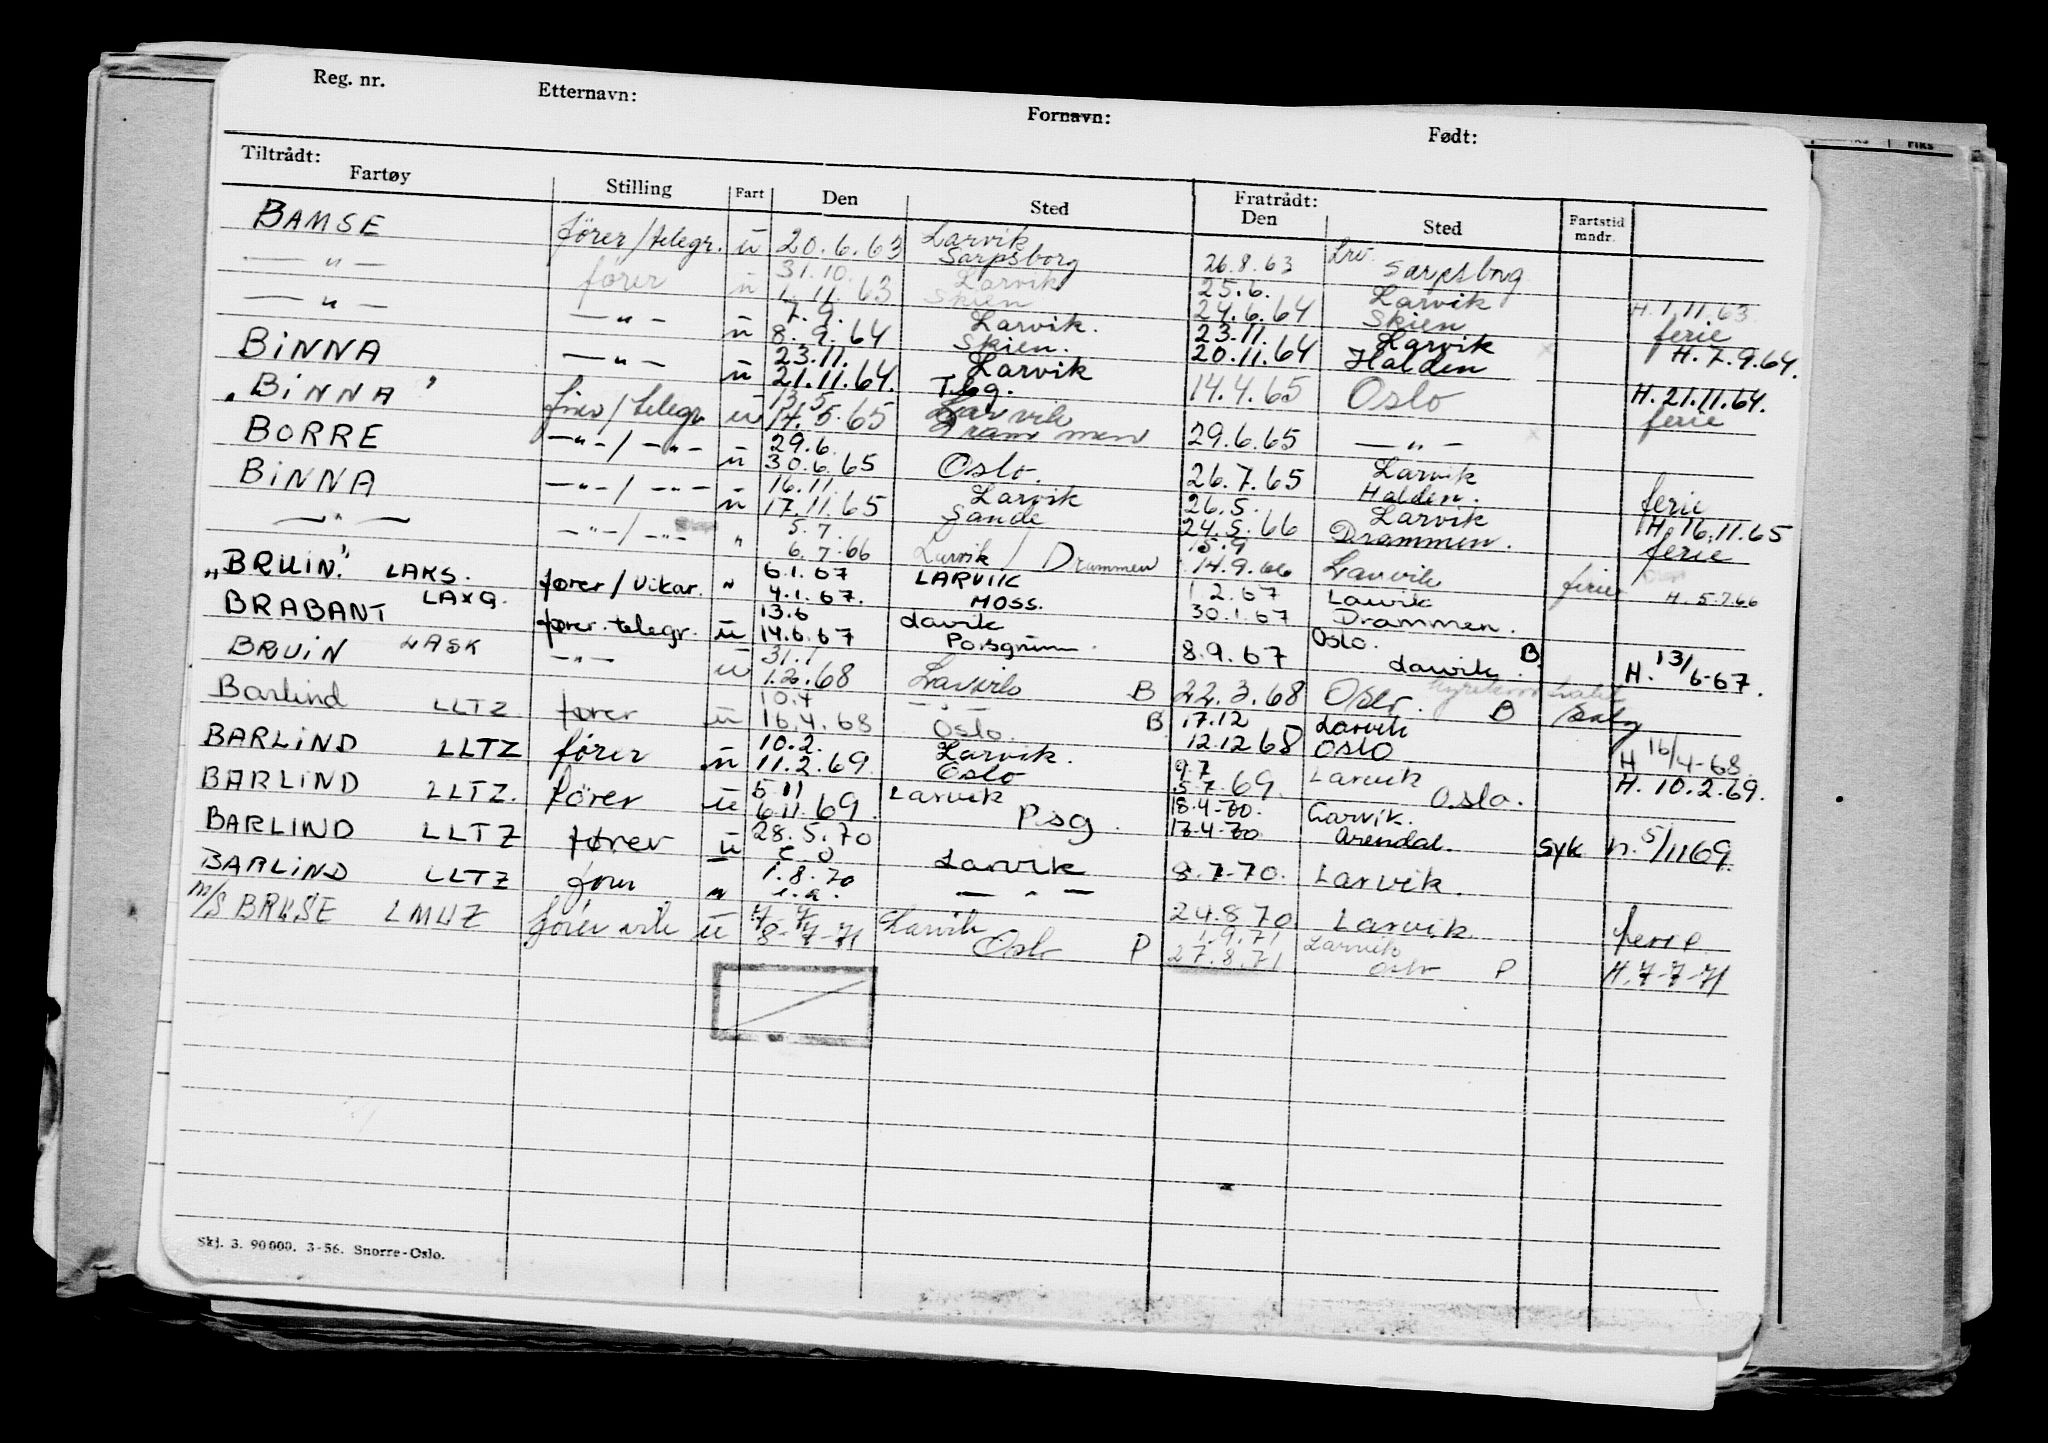 Reg. nr. Etternavn: Fornavn: Født:
Tiltrådt: Fratrådt:
Fartøy Stilling Fart Den Sted Den Sted Fartstid mndr. Fiks
BAMSE fører/telegr. u 20.6.63 Larvik Sarpsborg 26.8.63 Lrv. Sarpsborg
— " — fører u 31.10. 1.11.63 Larvik Skien 25.6. 24.6.64 Larvik Skien H. 1.11.63 ferie
— " — — " — u 7.9. 8.9.64 Larvik. Skien. 23.11. 20.11.64 Larvik Halden H. 7.9.64.
BINNA — " — u 23.11. 21.11.64. Larvik Tbg. 14.4.65 Oslo H. 21.11.64. ferie
"BINNA" fører/telegr u 13.5 14.5.65 Larvik Drammen 29.6.65 — " —
BORRE — " — / — " — u 29.6. 30.6.65 Oslo. 26.7.65 Larvik Halden. ferie
BINNA — " — / — " — u 16.11. 17.11.65 Larvik Sande 26.5. 24.5.66 Larvik Drammen. H. 16.11.65 ferie
— " — — " — / — " — " 5.7. 6.7.66 Larvik / Drammen 15.9 14.9.66 Larvik ferie H. 5.7.66
"BRUIN" LAKS. fører/vikar. " 6.1.67 4.1.67. LARVIK MOSS. 1.2.67 30.1.67 Larvik Drammen.
BRABANT LAXQ. fører-telegr. u 13.6 14.6.67 Larvik Porsgrunn. 8.9.67 Oslo. Larvik. B H. 13/6-67.
BRUIN LASK — " — u 31.1 1.2.68 Larvik B 22.3.68 Oslo. B salg
Barlind LLTZ fører u 10.4 16.4.68 — " — Oslo. B 17.12 12.12 68 Larvik Oslo H 16/4-68.
BARLIND LLTZ fører u 10.2. 11.2.69. Larvik. Oslo 9.7 5.7.69. Larvik Oslo. H. 10.2.69.
BARLIND LLTZ. fører u 5 11 6.11.69. Larvik Psg. 18.4-70. 17.4-70 Larvik. Arendal. syk h. 5/11 69.
BARLIND LLTZ fører u 28.5.70 Larvik 8.7-70. Larvik.
BARLIND LLTZ fører " 1.8.70 — " — 24.8.70 Larvik ferie
M/S BRUSE LMUZ fører vik u 7/7 8-7-71 Larvik Oslo P 1.9.71 27.8.71 Larvik Oslo P H. 7-7-71
Skj. 3. 90000. 3-56. Snorre-Oslo.